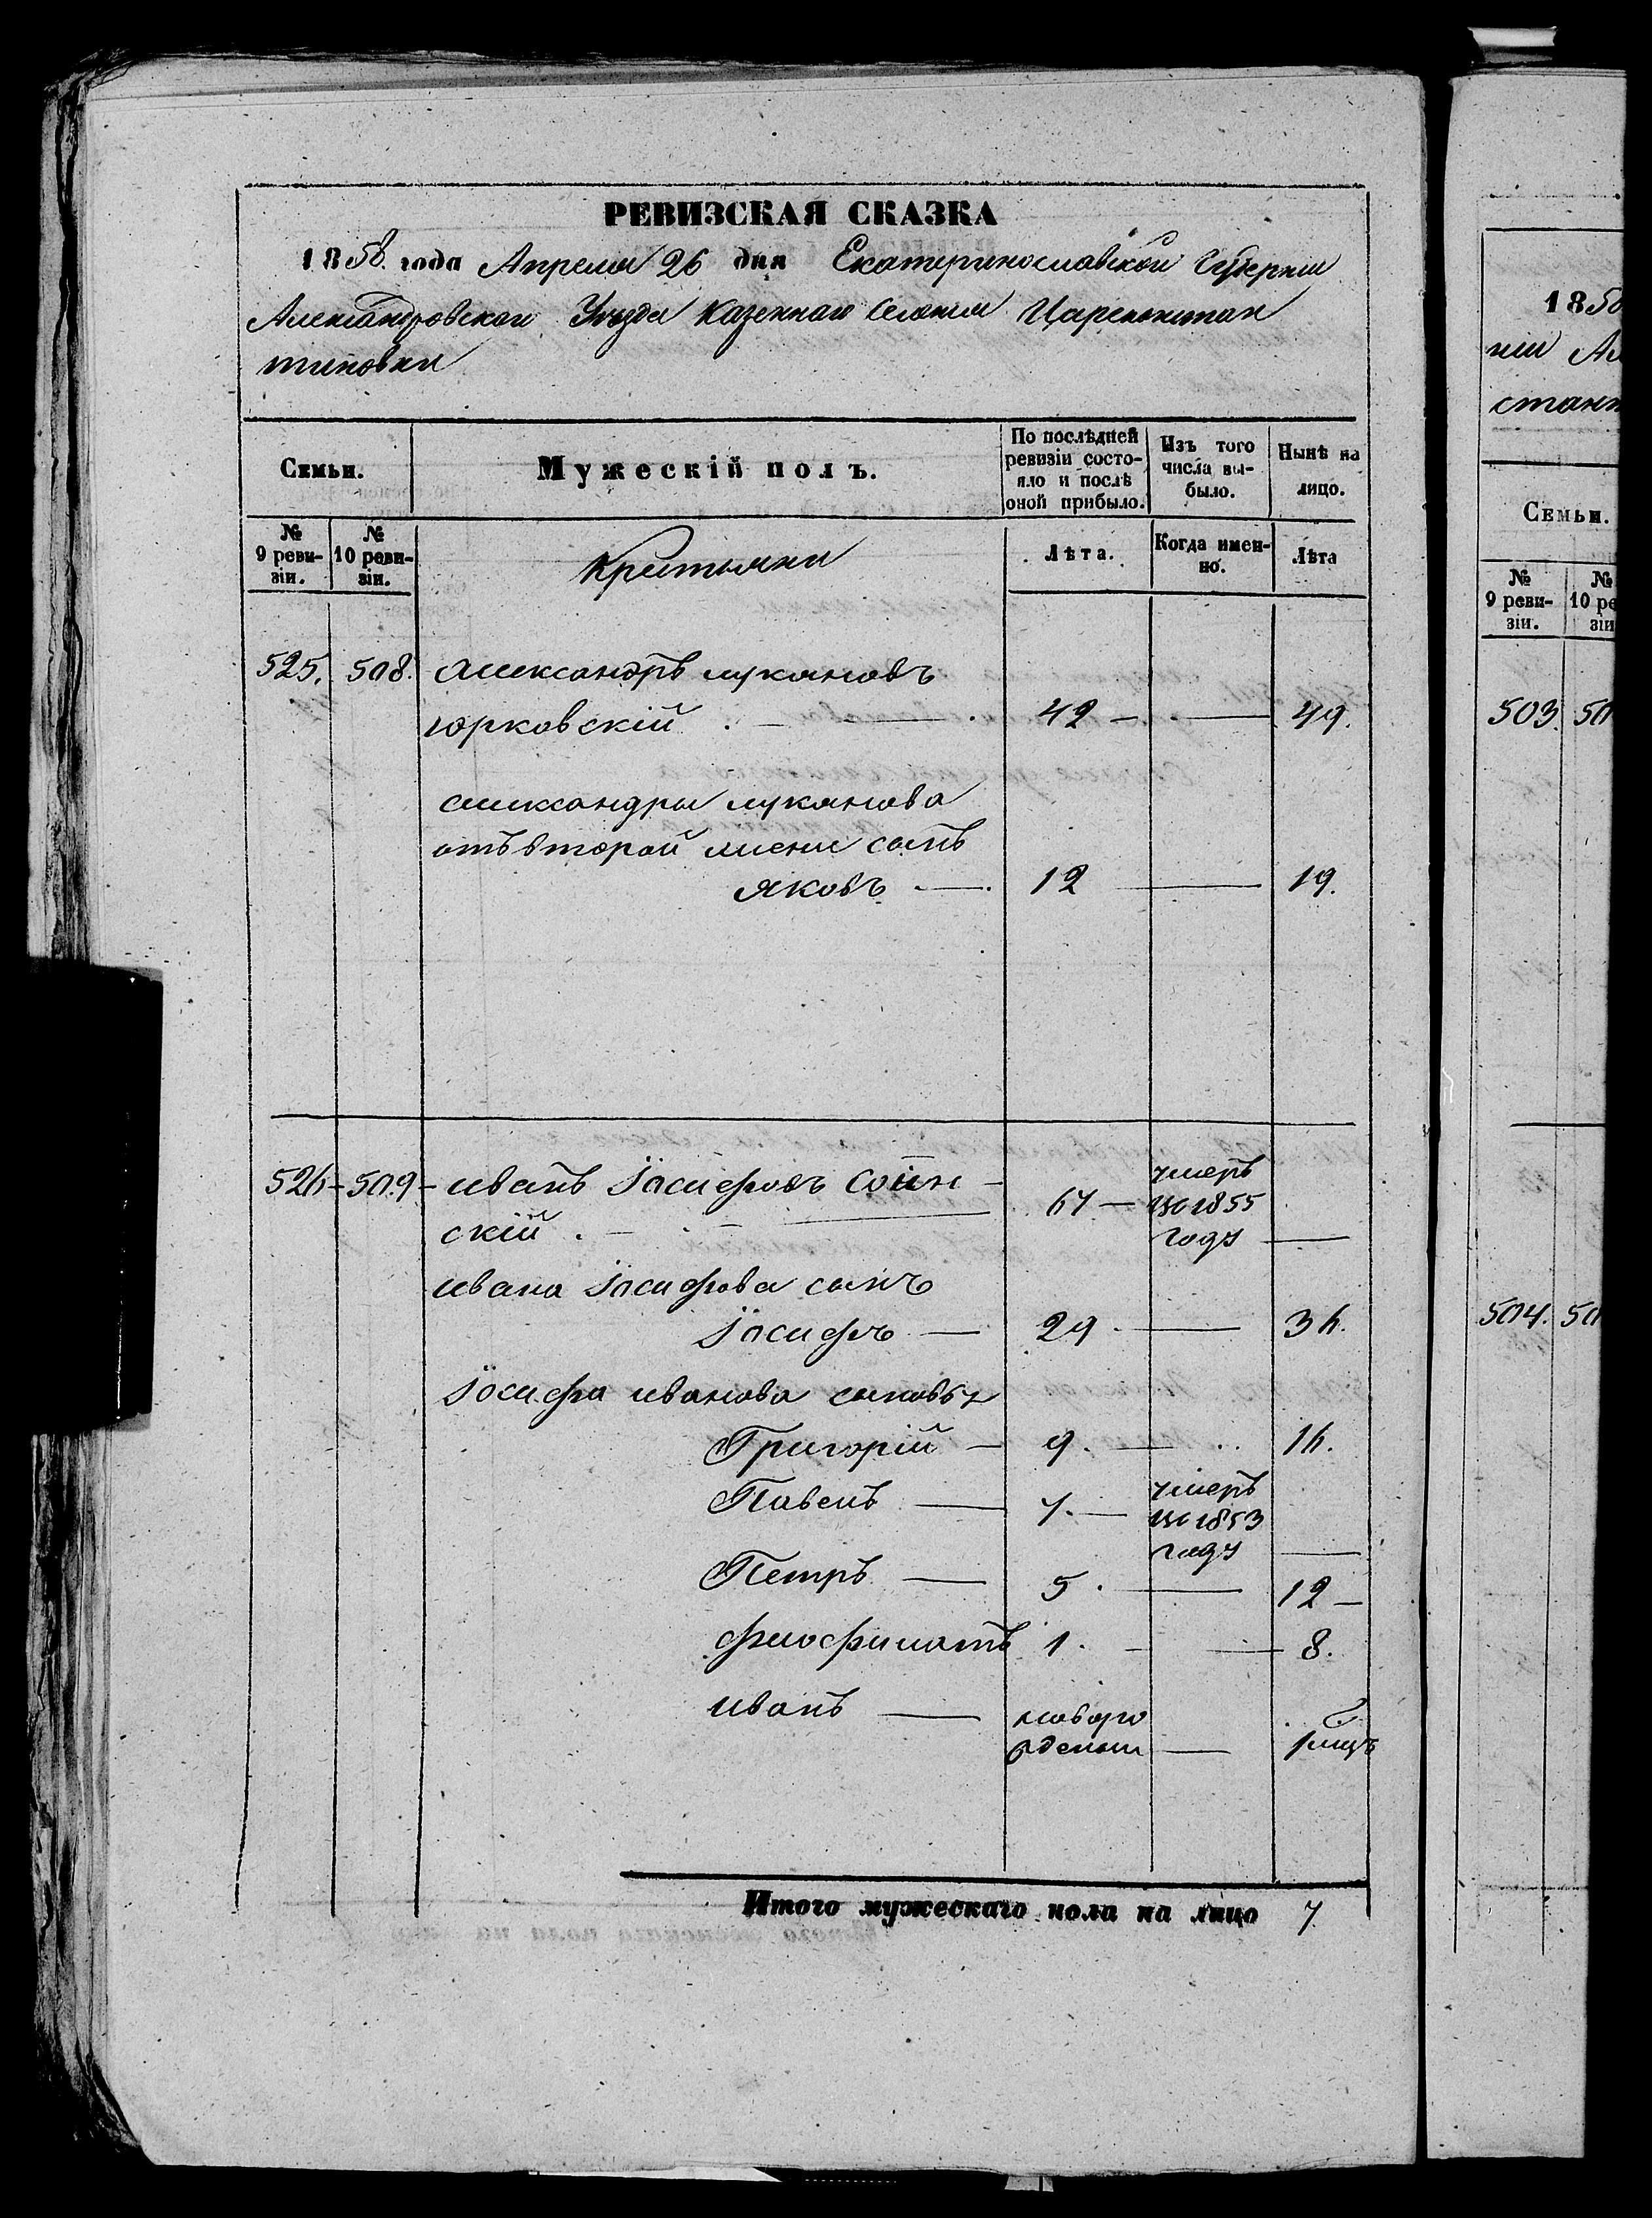 РЕВИЗСКАЯ СКАЗКА
1858 года Апреля 26 дня Екатеринославской Губернии
Александровскаго Уезда Казеннаго Селения Цареконстан
тиновки
Семьи.
Мужескій полъ.
По послѣдней ревизіи состо-
яло и послѣ
оной прибыло.
Изъ того
числа вы-
было.
Нынѣ на
лицо.
№
9 реви-
зіи.
№
10 реви-
зіи.
Крестьяне
Лѣта.
Когда имен-
но.
Лѣта
525. 508. Александръ лукяновъ
юрковскій 42 — 49.
александра лукянова
отъ второй жены сынъ
яковъ — 12 — 19.
526 - 509 - иванъ Іосифовъ
скій 67 — умеръ
1855
году —
ивана Іосифова сынъ
Іосифъ — 29 — 36.
Іосифа иванова сыновья
Григорій — 9. — 16.
Павелъ — 7. — умеръ
1853
году —
Петръ — 5 — 12 —
феофилактъ 1. — 8.
иванъ — новоро
жденый — 1 мцъ
Итого мужескаго пола на лицо 7
1858
нии Ал
стант
Семьи.
№
9 реви-
зіи.
№
10 ре
зіи
503. 50
504. 50